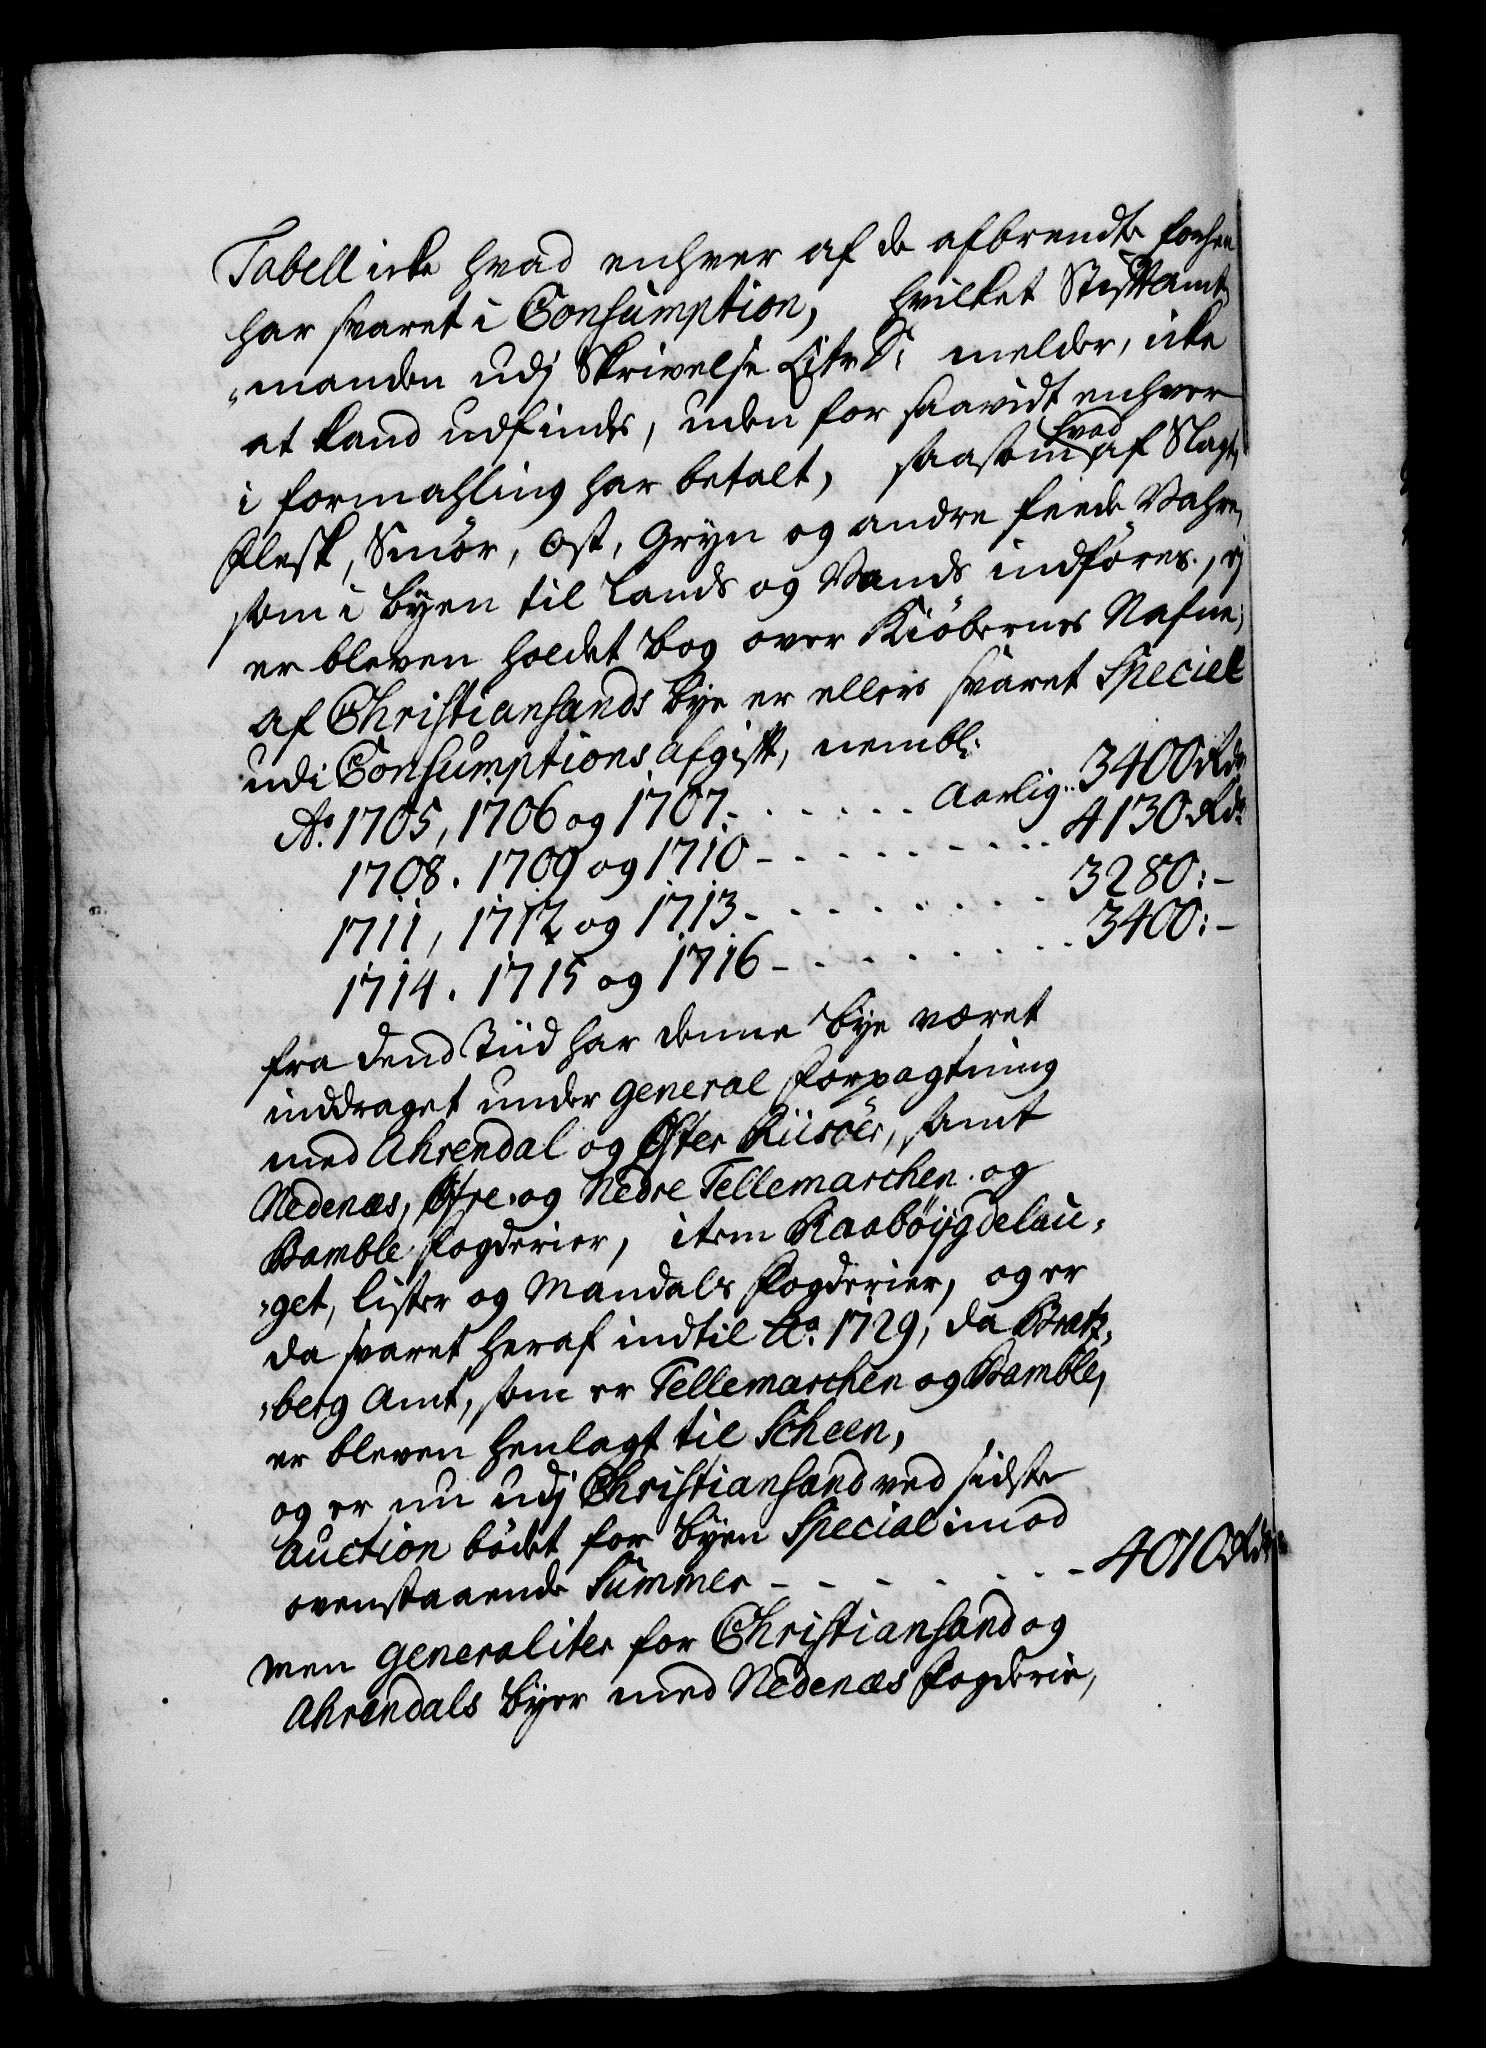 Tabell icke hvad enhver af de afbrendte forhen
har svaret i Consumption, hvilket Stiftamt„
„manden udj Skrivelse Litr: D: melder, icke
at kand udfindes, uden for saavidt enhver
i formahling har betalt, saasom hvad af Slagt,
Flesk, Smør, Ost, Gryn og andre feede Vahre,
som i Byen til Lands og Vands indføres, ej
er bleven holdet Bog over Kiøbernes Nafne;
af Christiansands Bye er ellers svaret Speciel
udi Consumptions Afgift, nembl:
Ao. 1705, 1706 og 1707 - - - - - - Aarlig.. 3400 Rdr
1708. 1709 og 1710 - - - - - - - - - 4130 Rdr
1711, 1712 og 1713 - - - - - - - - - 3280:-
1714. 1715 og 1716 - - - - - - - - - 3400:-
fra dend Tiid har denne Bye været
inddraget under General Forpagtning
med Ahrendal og Øster Riisöer, samt
Nedenæs, Øfre- og Nedre Tellemarchen og
Bamble Fogderier, item Raabøijgdelau„
„get, Lister og Mandals Fogderier, og er
da svaret heraf indtil Ao. 1729, da Bratz„
„berg Amt, som er Tellemarchen og Bamble,
er bleven henlagt til Scheen,
og er nu udj Christiansand ved sidste
Auction bödet for Byen Special imod
ovenstaaende Summer - - - - - - - 4010 Rdr
Men generaliter for Christiansand og
Ahrendals Byer med Nedenæs Fogderie,